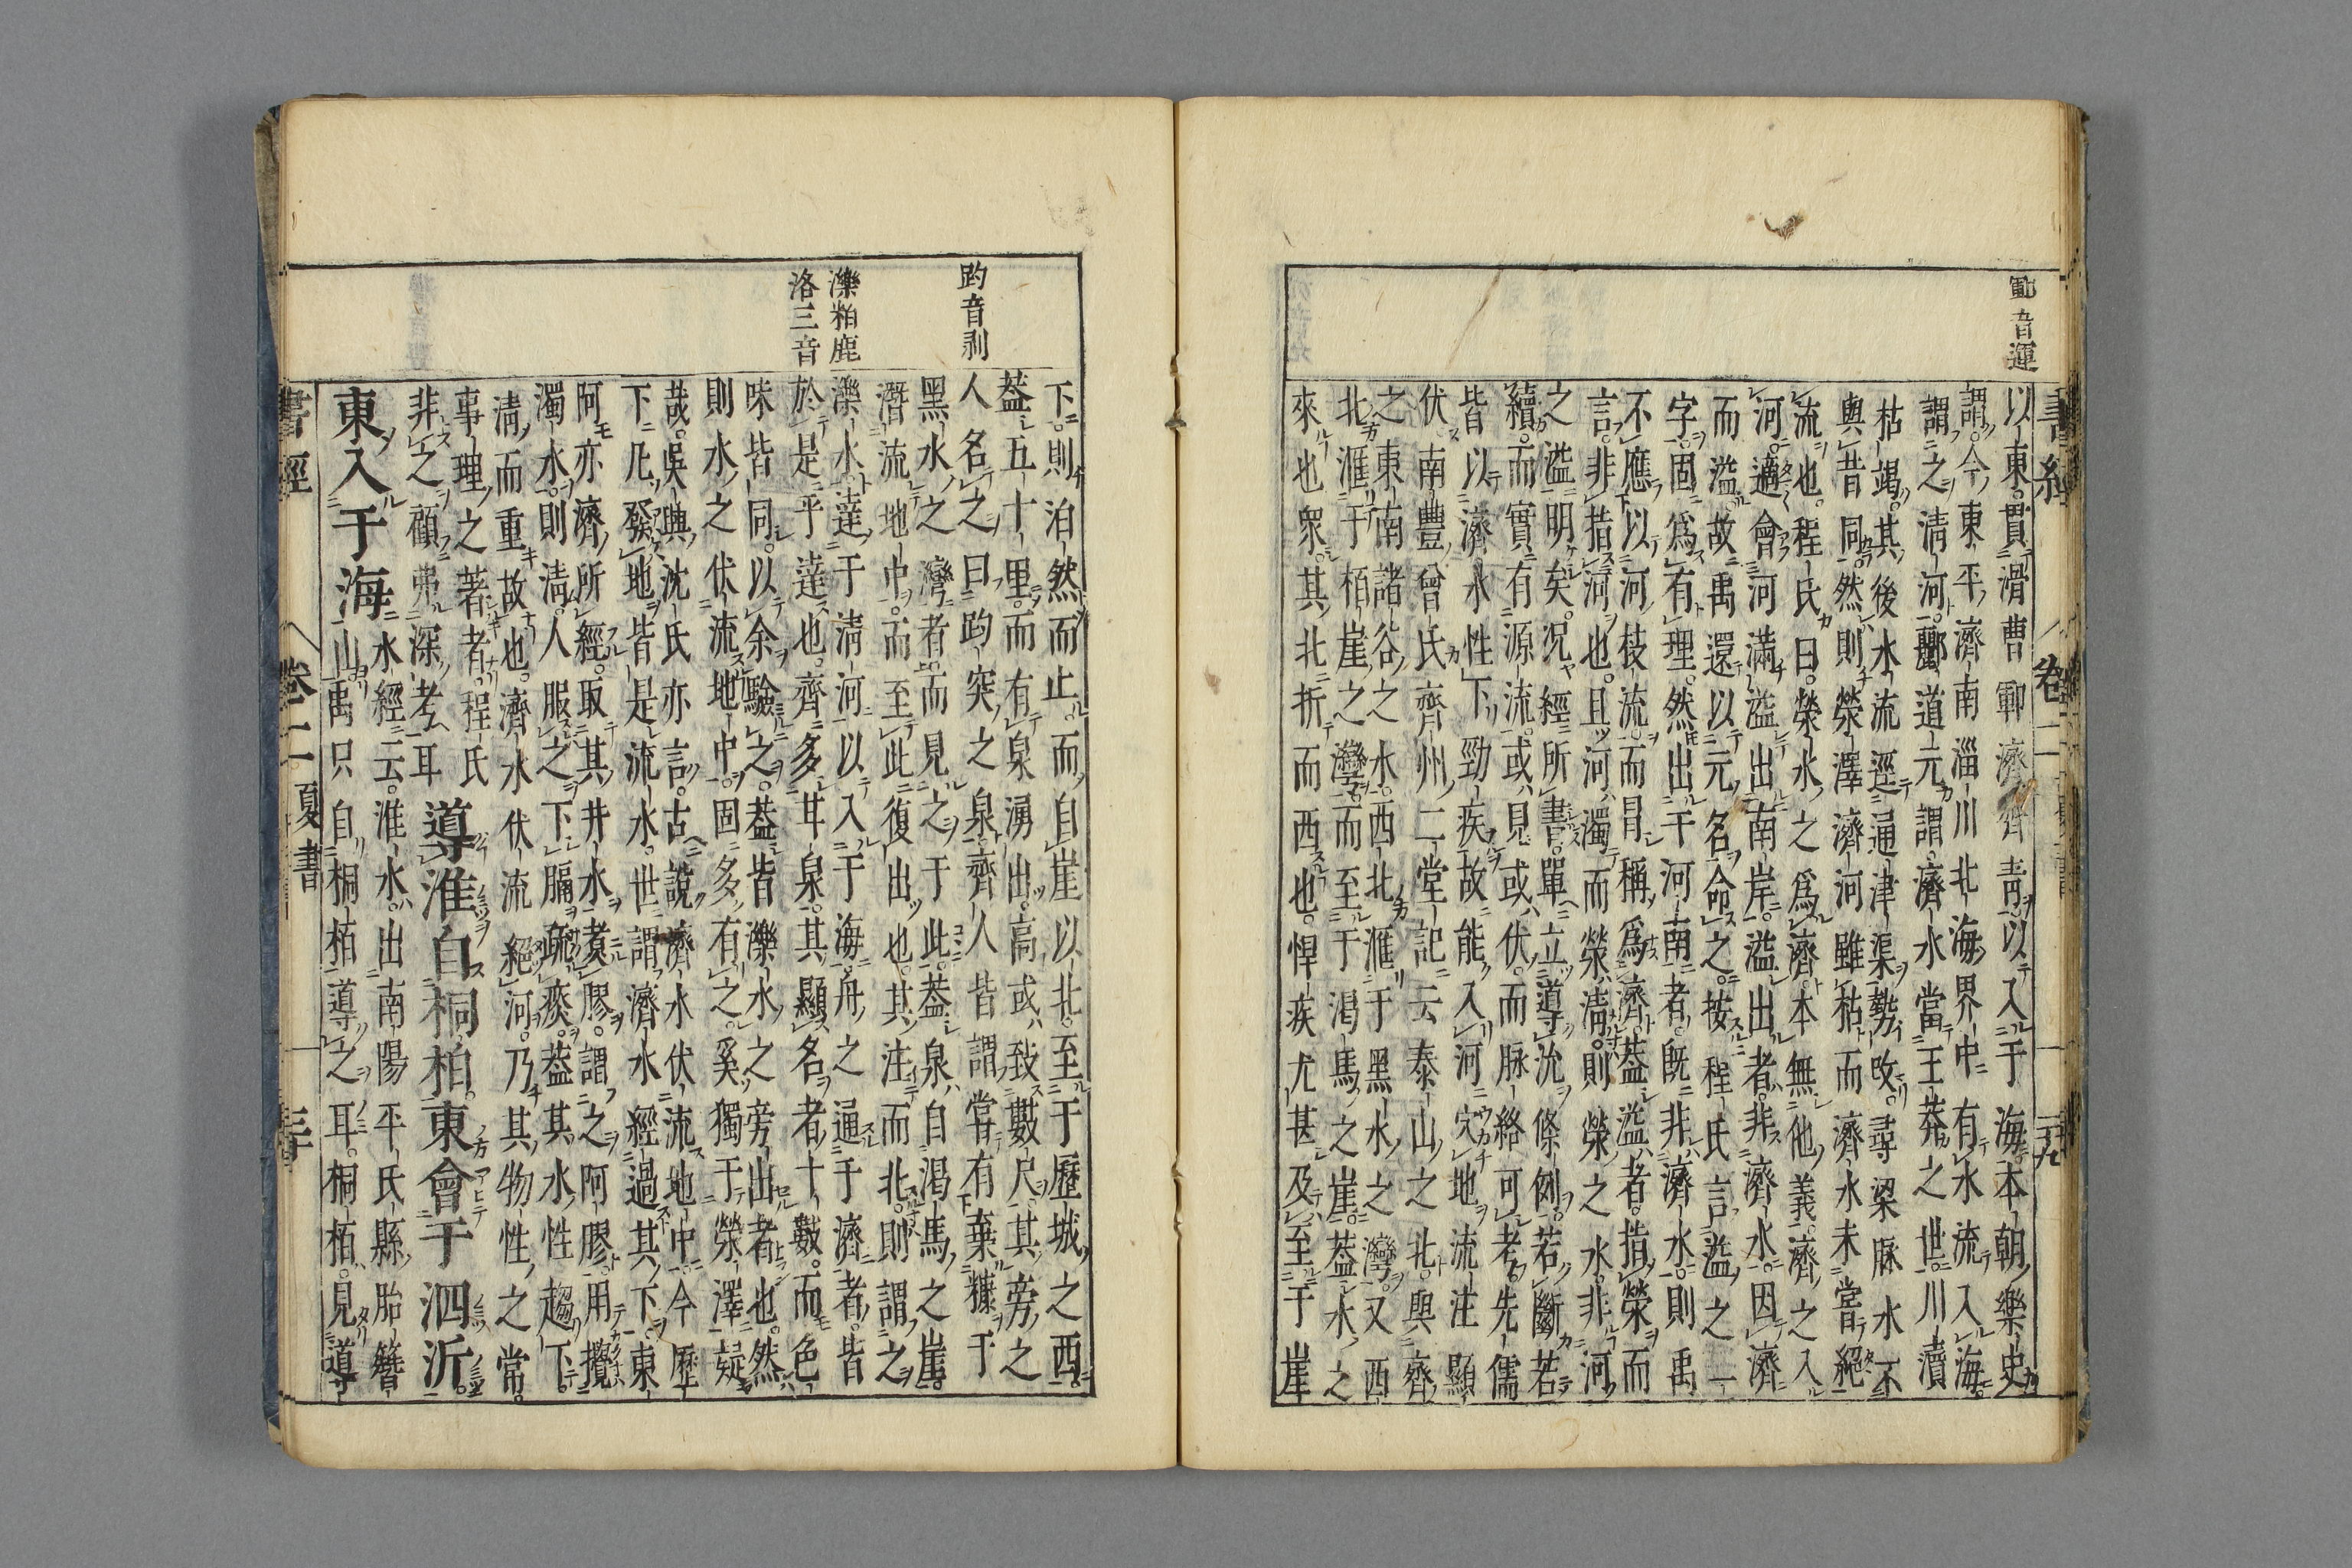 鄆音運
以東貫滑曹鄆濟齊青以入于海本朝樂史
謂今東平濟南淄川北海界中有水流入海
謂之淸河酈道元謂濟水當王莽之世川瀆
枯竭其後水流逕通津渠勢改尋梁脉水不
與昔同然則滎澤濟河雖枯而濟水未嘗絕
流也程氏曰滎水之爲濟本無他義濟之入
河適會河滿溢出南岸溢出者非濟水因濟
而溢故禹還以元名命之按程氏言溢之一
字固爲有理然出于河南者旣非濟水則禹
不應以河枝流而冒稱爲濟蓋溢者指滎而
言非指河也且河濁而滎淸則滎之水非河
之溢明矣況經所書單立導沇條例若斷若
續而實有源流或見或伏而脉絡可考先儒
皆以濟水性下勁疾故能入河穴地流注顯
伏南豐曾氏齊州二堂記云泰山之北與齊
之東南諸谷之水西北滙于黑水之灣又西
北滙于栢崖之灣而至于渴馬之崖蓋水之
來也衆其北折而西也悍疾尤甚及至于崖
書經 卷二 夏書 三十九
趵音剥
濼粕鹿
洛三音
下則泊然而止而自崖以北至于歷城之西
蓋五十里而有泉湧出高或致數尺其旁之
人名之曰趵突之泉齊人皆謂嘗有棄糠于
黑水之灣者而見之于此蓋泉自渴馬之崖
潛流地中而至此復出也其注而北則謂之
濼水達于淸河以入于海舟之通于濟者皆
於是乎達也齊多甘泉其顯名者十數而色
味皆同以余驗之蓋皆濼水之旁出者也然
則水之伏流地中固多有之奚獨于滎澤疑
哉吳興沈氏亦言古說濟水伏流地中今歷
下凡發地皆是流水世謂濟水經過其下東
阿亦濟所經取其井水煮膠謂之阿膠用攪
濁水則淸人服之下膈疏痰蓋其水性趨下
淸而重故也濟水伏流絕河乃其物性之常
事理之著者程氏
非之顧弗深考耳 導淮自桐柏東會于泗沂
東入于海 水經云淮水出南陽平氏縣胎簪
山禹只自桐栢導之耳桐栢見導
書經 卷二 夏書 四十